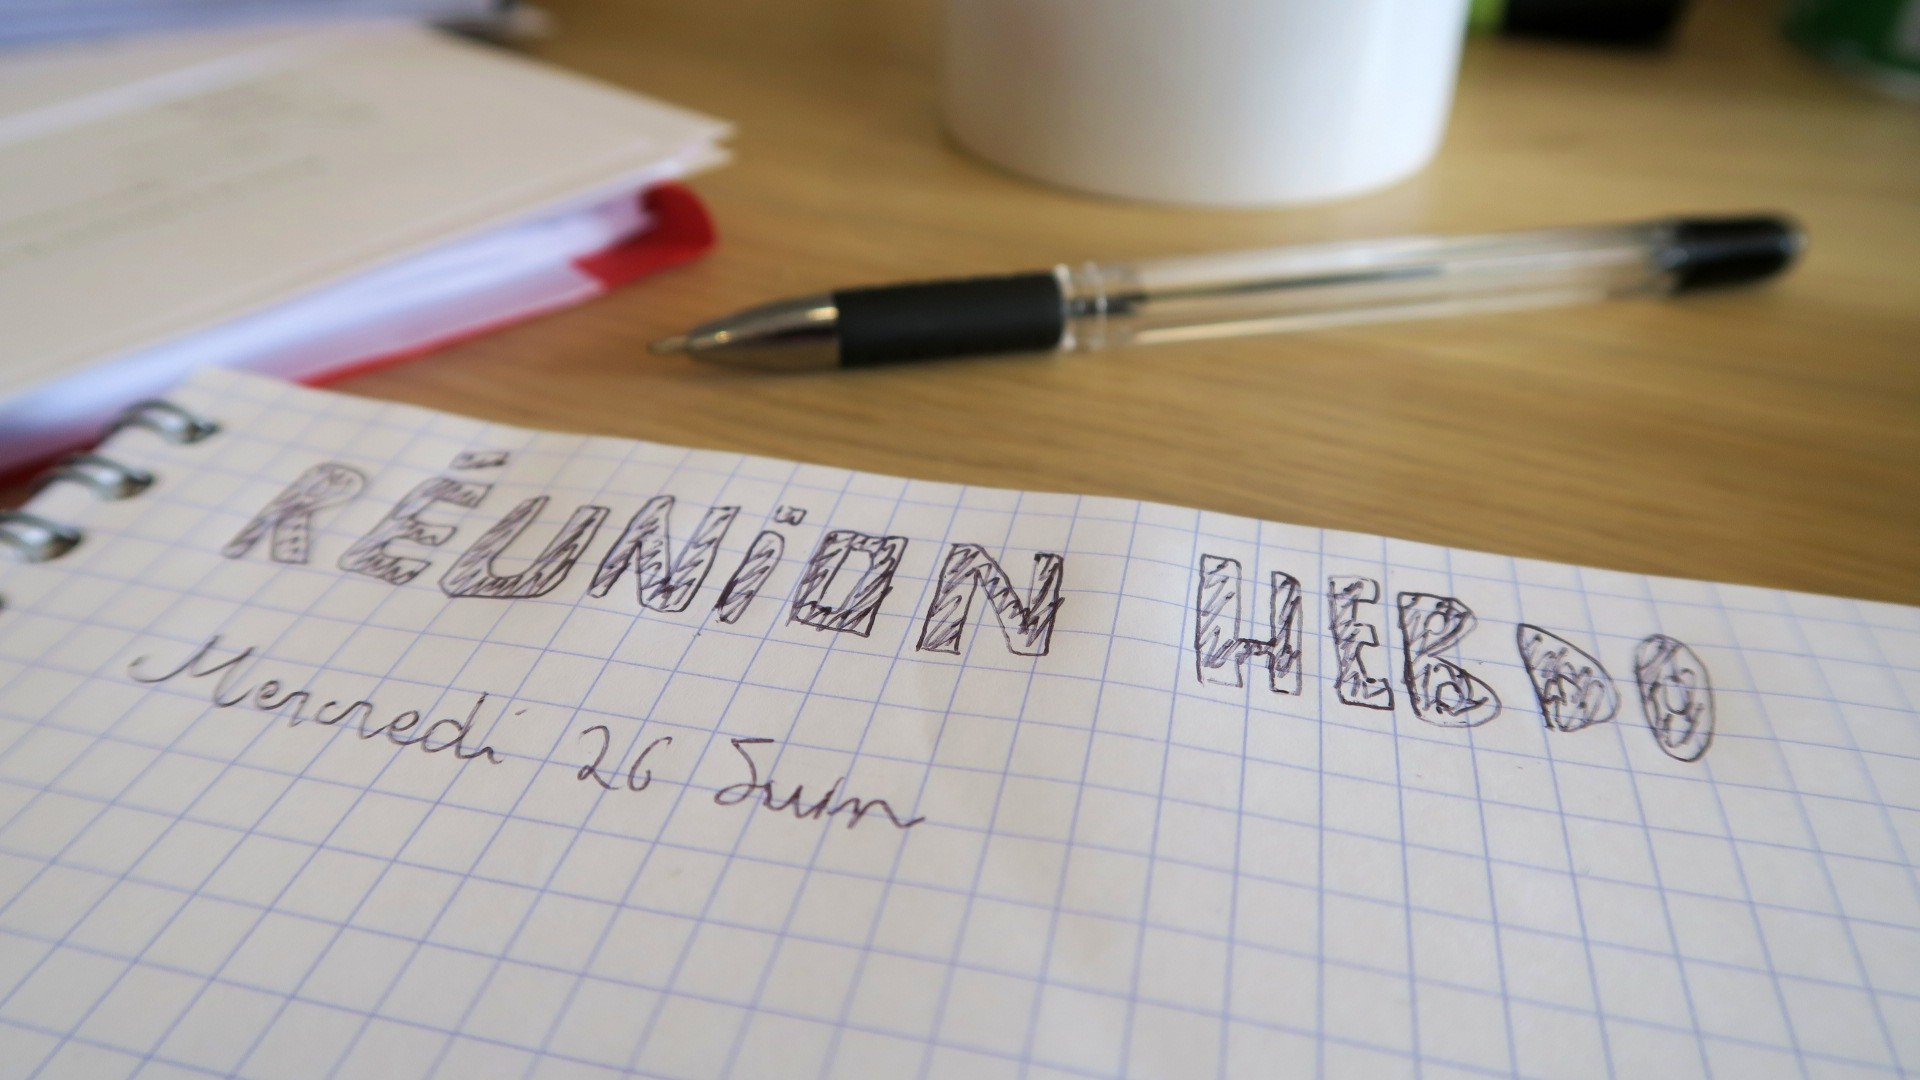 RÉUNiON HEBDO
Mercredi 26 Juin